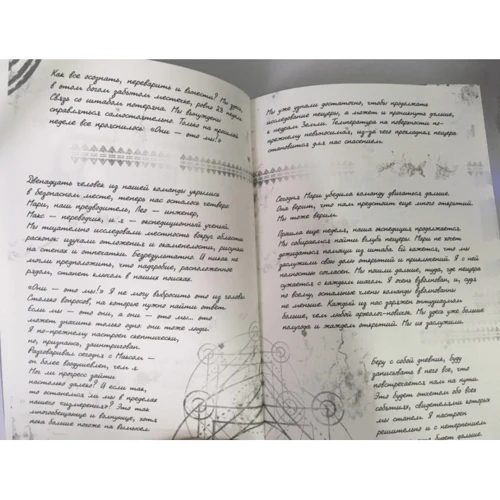 Как все осознать, переварить и вместить? Мы здесь,
в этом богом забытом местечке, ровно 23 недели.
Связь со штабом потеряна. Мы вынуждены
справляться самостоятельно. Только на прошлой
неделе все прояснилось: «Они — это мы!»
Двенадцать человек из нашей команды укрылись
в безопасном месте, теперь нас осталось четверо
Мари, наш предводитель, Лео — инженер,
Макс — переводчик, и я — экспедиционный ученый.
Мы тщательно исследовали местность вокруг области
раскопок изучали отложения и окаменелости, рисунки
на стенах и отпечатки, безрезультатно. И никак не
могли предположить, что надгробие, расположенное
рядом, станет ключом в наших поисках.
«Они — это мы!» Я не могу выбросить это из головы.
Столько вопросов, на которые нужно найти ответ.
Если мы — это они, а они — это мы... это
может значить только одно они тоже люди.
Я по-прежнему настроен скептически,
но, признаюсь, заинтригован.
Разговаривал сегодня с Максом —
он более воодушевлен, чем я
Мог ли прогресс зайти
настолько далеко? А если так,
то остались ли мы в пределах
нашего измерения? Это так
многообещающе и волнующе, хотя
пока больше похоже на вымысел.
Мы уже узнали достаточно, чтобы продолжать
исследование пещеры, а может и проникнуть дальше,
к недрам Земли. Температура на поверхности по-
прежнему невыносимая, из-за чего прохладная пещера
становится для нас спасением.
Сегодня Мари убедила команду двигаться дальше.
Она верит, что нам предстоит еще много открытий.
Мы тоже верим.
Прошла еще неделя, наша экспедиция продолжается.
Мы собираемся пойти вглубь пещеры. Мари не хочет
дожидаться помощи из штаба. Ей кажется, что мы
заслужили свою долю открытий и приключений. Я с ней
полностью согласен. Мы пошли дальше, туда, где пещера
сужается с каждым шагом. Я очень взволнован, и, судя
по всему, остальные члены команды взволнованы
не меньше. Каждый из нас заражен энтузиазмом
больше, чем любой археолог-новичок. Мы здесь уже больше
полугода и жаждем открытий. Мы их заслужили.
Беру с собой дневник, буду
записывать в него все, что
повстречается нам на пути.
Это будет отчетом обо всех
событиях, свидетелями которых
мы станем. Я настроен
решительно и с нетерпением
будет дальше.